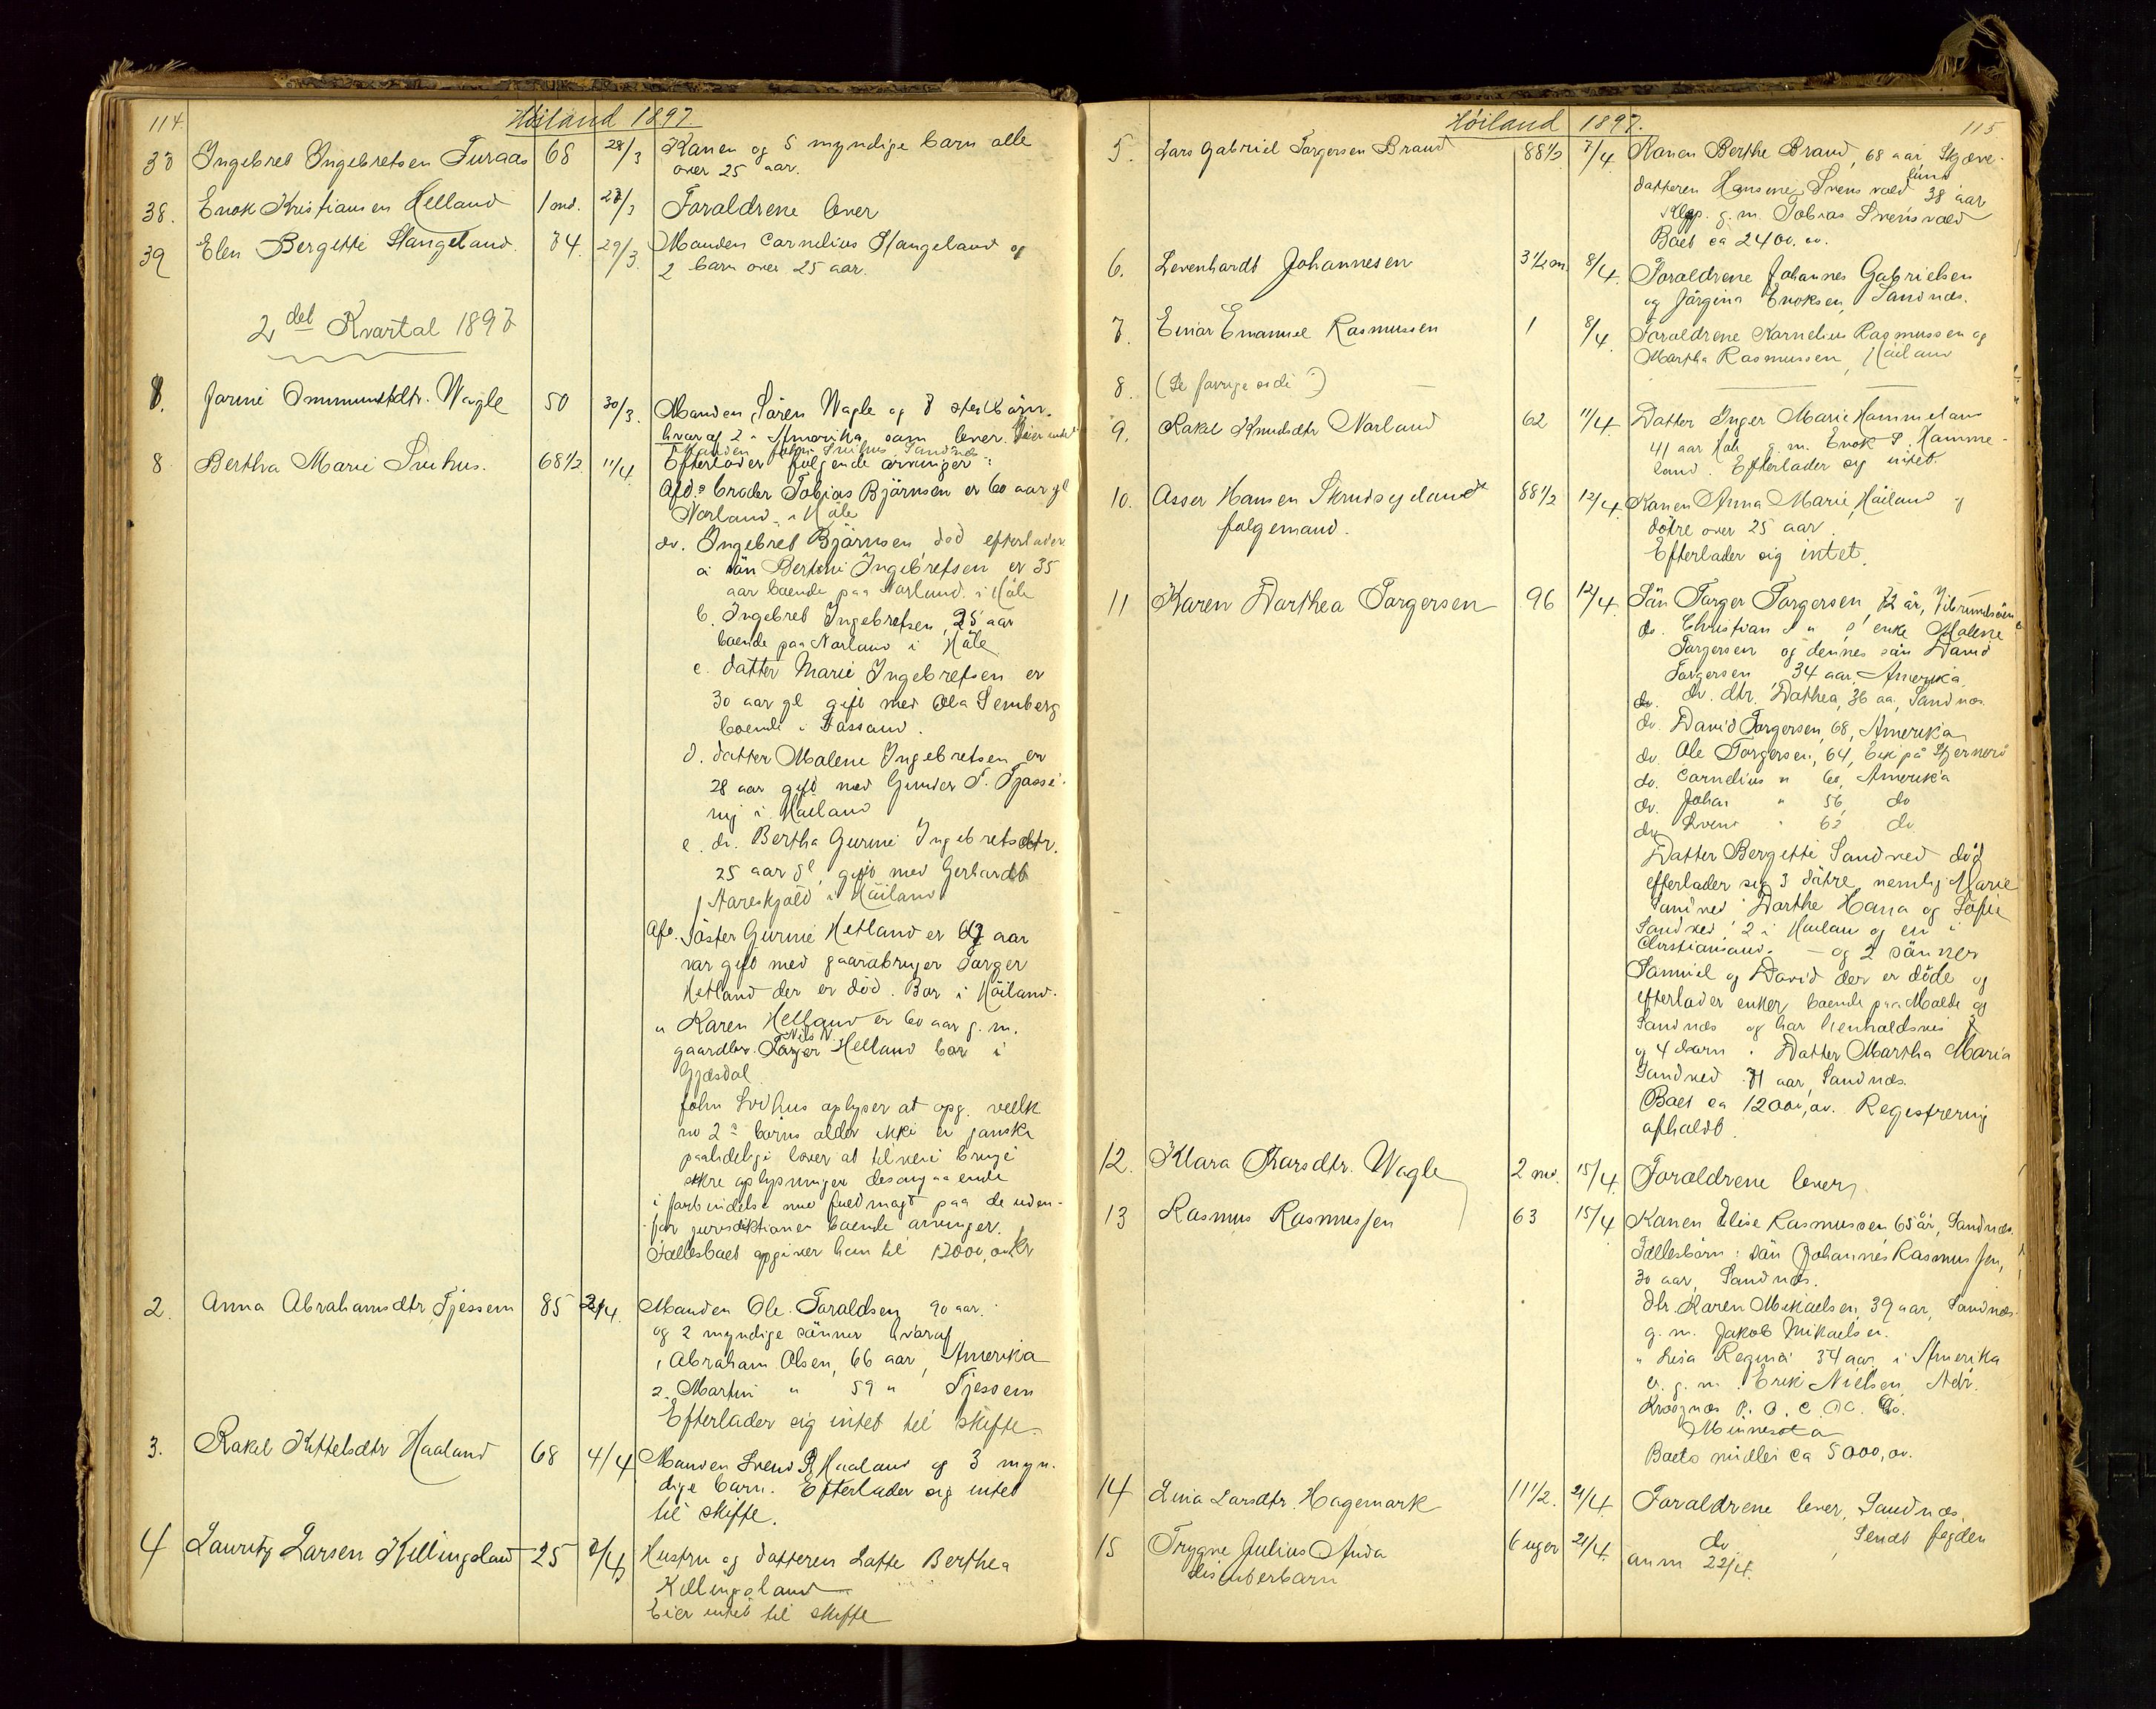 114.
Höiland 1897.
Ingebret Ingebretsen Furaas 68 28/3 Konen og 5 myndige barn alle
over 25 aar.
38. Enok Kristiansen Helland 1 md. Foraldrene lever
39 Elen Bergitte Stangeland. 74. 29/3. Manden Cornelius Stangeland og
2 barn over 25 aar.
2det Kvartal 1897
1. Jorine Ommundsdtr. Wagle 50 30/3. Manden Sören Wagle og
hvoraf 2 i Amerika som lever.
8. Bertha Marie Svihus. 68 1/2 11/4. Manden John Svihus Sandnæs
Efterlader følgende arvinger:
Afd.s broder Tobias Björnsen er 60 aar gl
Norland i Höle
do. Ingebret Björnsen, död efterlader
a. sön Bertini Ingebretsen er 35
aar boende paa Norland i Höle
b. Ingebret Ingebretsen, 25 aar
boende paa Norland i Höle
c. datter Marie Ingebretsen er
30 aar gl gift med Ola Lemberg
boende i
d. datter Malene Ingebretsen er
28 aar gift med Gunder T.
i Höiland
e. do. Bertha Gurine Ingebretsdtr.
25 aar gl, gift med Gerhardt
Hareskjold i Höiland
Afd. Söster Gurine Hetland er aar
var gift med gaardbruger Torger
Hetland der er död. Bor i Höiland.
" Karen Helland er 60 aar g. m.
gaardbr. Nils N. Helland bor i
Gjesdal
John Svihus oplyser at opg. vedk
no 2s börns alder ikke er ganske
paalidelige lover at tilveie bringe
sikre oplysninger desangaaende
i forbindelse med fuldmagt paa de uden-
for jurisdiktionen boende arvinger.
Fællesboet opgiver han til 12000,00 Kr
2. Anna Abrahamsdtr Tjessem 85 Manden Ole Toraldsen 90 aar.
og 2 myndige sönner hvoraf
1 Abraham Olsen, 66 aar, Amerika
2. Martin " 59 " Tjessem
Efterlader sig intet til skifte.
3. Rakel Kittelsdtr Haaland 68 4/4 Manden Svend R Haaland og 3 myn-
dige barn. Efterlader sig intet
til skifte.
4 Lauritz Larsen Killingsland 25 Hustru og datteren Lotte Berthea
Killingsland
Eier intet til skifte
Höiland 1897. 115
5. Lars Gabriel Torgersen Brand 88 1/2 7/4. Konen Berthe Brand, 68 aar,
datteren Hansine Svensvold 38 aar
Klep. g. m. Tobias Svensvold
Boet ca 2400.00.
6. Levenhardt Johannesen 3 1/2 m. 8/4. Foraldrene Johannes Gabrielsen
og Jörgine Enoksen, Sandnæs.
7. Einar Emanuel Rasmussen 1 8/4. Foraldrene Kornelius Rasmussen og
Martha Rasmussen, Höiland
8. (Se forrige side)
9. Rakel Knudsdtr Norland 62 11/4 Datter Inger Marie Hammeland
41 aar Höle g. m. Enok P. Hamme-
land. Efterlader sig intet.
10. Asser Hansen Skrudsyland 88 1/2 12/4. Konen Anna Marie, Höiland og
folgemand. dötre over 25 aar.
Efterlader sig intet.
11 Karen Dorthea Torgersen 96 12/4. Sön Torger Torgersen, 72 år,
do. Christian enke Malene
Torgersen og dennes sön David
Torgersen, 34 aar, Amerika.
do. dtr. Dorthea, 36 aa, Sandnæs.
do. David Torgersen, 68, Amerika
do. Ole Torgersen, 64, Eik på Stjernerö
do. Cornelius " 60, Amerika
do. Johan " 56, do
do. Svend " 62 do.
Datter Bergitte Sandved död
efterlader sig 3 dötre nemlig Marie
Sandved Dorthe Hana og Sofie
Sandved, 2 i Höiland og en i
Christiansand. — og 2 sönner
Samuel og David der er döde og
efterlader enker boende paa Molde og
Sandnæs og har henholdsvis
og 4 barn. Datter Martha Maria
Sandved 71 aar, Sandnæs.
Boet ca 12000,00. Registrering
afholdt.
12. Klara Larsdtr. Wagle 2 md. 15/4. Foraldrene lever
13 Rasmus Rasmussen 63 15/4 Konen Elise Rasmussen 65 år, Sandnæs.
Fællesbörn: sön Johannes Rasmussen,
30 aar, Sandnæs.
dtr. Karen Mikaelsen, 39 aar, Sandnæs
g. m. Jakob Mikaelsen.
" Lisa Regina 34 aar i Amerika
er g. m. Erik Nielsen, Adr.
Minnesota
Boets midler ca 5000,00.
14 Lina Larsdtr. Hagemark 11 1/2. 21/4. Foraldrene lever, Sandnæs.
15 Trygve Julius Anda 6 uger 21/4. do , Sendt fogden
anm 22/4.